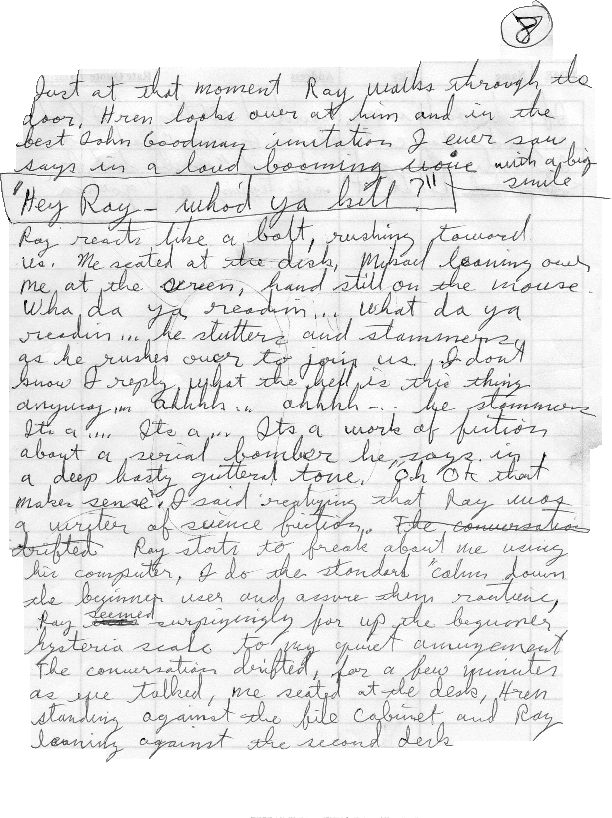 8
Just at that moment Ray walks through the
door, Hren looks over at him and in the
best John Goodman imitation I ever saw
says in a loud booming voice with a big
smile
"Hey Ray - who'd ya kill?"
Ray reacts like a bolt, rushing toward
us. Me seated at the desk, leaning over
me at the screen, hand still on the mouse.
Wha da ya readin... what da ya
readin... he stutters and stammers,
as he rushes over to join us. I don't
know I reply, what the hell is this thing
anyway... ahhhh... ahhhh... he stammers
Its a.... Its a.... Its a work of fiction
about a serial bomber he says in
a deep hasty gutteral tone. "Oh OK that
makes sense". I said realizing that Ray was
a writer of science fiction. The conversation
drifted Ray starts to freak about me using
his computer, I do the standard "calm down
the beginner user and assure them routine,
Ray seemed surprizingly far up the beginner
hysteria scale to my quiet amusement
The conversation drifted, for a few minutes
as we talked, me seated at the desk, Hren
standing against the file cabinet and Ray
leaning against the second desk